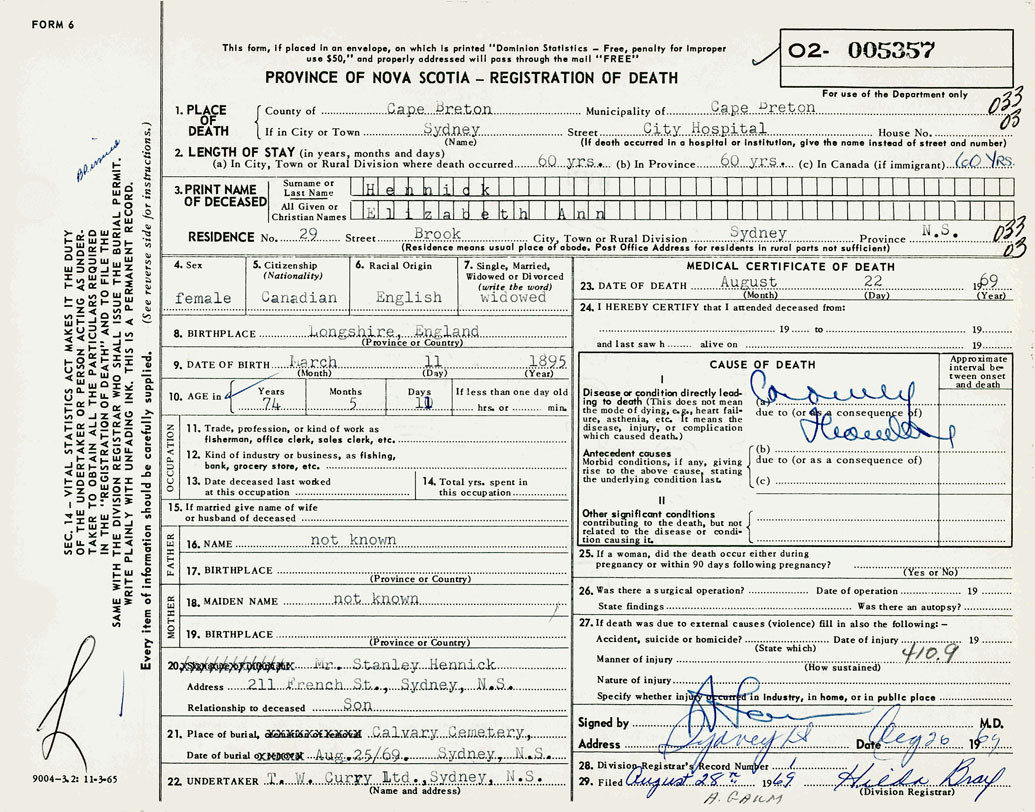 FORM 6
This form, if placed in an envelope, on which is printed "Dominion Statistics – Free, penalty for improper
use $50," and properly addressed will pass through the mail "FREE"
02- 005357
PROVINCE OF NOVA SCOTIA – REGISTRATION OF DEATH
For use of the Department only
1. PLACE OF DEATH County of Cape Breton Municipality of Cape Breton 033
If in City or Town Sydney Street City Hospital House No. 03
(Name) (If death occurred in a hospital or institution, give the name instead of street and number)
2. LENGTH OF STAY (in years, months and days)
(a) In City, Town or Rural Division where death occurred 60 yrs. (b) In Province 60 yrs. (c) In Canada (if immigrant) 60 Yrs.
3. PRINT NAME OF DECEASED Surname or Last Name Hennick
All Given or Christian Names Elizabeth Ann
RESIDENCE No. 29 Street Brook City, Town or Rural Division Sydney Province N.S. 033
(Residence means usual place of abode. Post Office Address for residents in rural parts not sufficient) 03
4. Sex
female
5. Citizenship
(Nationality)
Canadian
6. Racial Origin
English
7. Single, Married,
Widowed or Divorced
(write the word)
widowed
8. BIRTHPLACE Longshire, England
(Province or Country)
9. DATE OF BIRTH March 11 1895
(Month) (Day) (Year)
10. AGE in Years Months Days If less than one day old
74 5 11 hrs. or min.
OCCUPATION
11. Trade, profession, or kind of work as
fisherman, office clerk, sales clerk, etc.
12. Kind of industry or business, as fishing,
bank, grocery store, etc.
13. Date deceased last worked
at this occupation
14. Total yrs. spent in
this occupation
15. If married give name of wife
or husband of deceased
FATHER
16. NAME not known
17. BIRTHPLACE
(Province or Country)
MOTHER
18. MAIDEN NAME not known
19. BIRTHPLACE
(Province or Country)
20. Mr. Stanley Hennick
Address 211 French St., Sydney, N.S.
Relationship to deceased Son
21. Place of burial, Calvary Cemetery,
Date of burial Aug.25/69. Sydney, N.S.
22. UNDERTAKER T. W. Curry Ltd., Sydney, N.S.
(Name and address)
MEDICAL CERTIFICATE OF DEATH
23. DATE OF DEATH August 22 1969
(Month) (Day) (Year)
24. I HEREBY CERTIFY that I attended deceased from:
19 to 19
and last saw h alive on 19
CAUSE OF DEATH
Approximate
interval be-
tween onset
and death
I
Disease or condition directly lead-
ing to death (This does not mean
the mode of dying, e.g., heart fail-
ure, asthenia, etc. It means the
disease, injury, or complication
which caused death.)
(a) Coronary
due to (or as a consequence of)
Thrombosis
Antecedent causes
Morbid conditions, if any, giving
rise to the above cause, stating
the underlying condition last.
(b)
due to (or as a consequence of)
(c)
II
Other significant conditions
contributing to the death, but not
related to the disease or condi-
tion causing it.
25. If a woman, did the death occur either during
pregnancy or within 90 days following pregnancy?
(Yes or No)
26. Was there a surgical operation? Date of operation 19
State findings Was there an autopsy?
27. If death was due to external causes (violence) fill in also the following: –
Accident, suicide or homicide? Date of injury 19
(State which)
410.9
Manner of injury
(How sustained)
Nature of injury
Specify whether injury occurred in industry, in home, or in public place
Signed by M.D.
Address Sydney NS Date Aug 26 1969
28. Division Registrar's Record Number
29. Filed August 28th 1969 Hilda Bray
(Division Registrar)
SEC. 14 – VITAL STATISTICS ACT MAKES IT THE DUTY
OF THE UNDERTAKER OR PERSON ACTING AS UNDER-
TAKER TO OBTAIN ALL THE PARTICULARS REQUIRED
IN THE "REGISTRATION OF DEATH" AND TO FILE THE
SAME WITH THE DIVISION REGISTRAR WHO SHALL ISSUE THE BURIAL PERMIT.
WRITE PLAINLY WITH UNFADING INK. THIS IS A PERMANENT RECORD.
Every item of information should be carefully supplied. (See reverse side for instructions.)
9004-3.2: 11-3-65